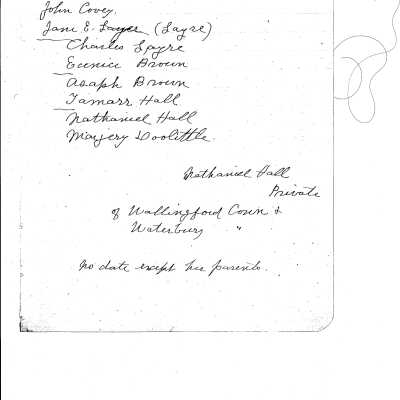 John Covey,
Jane E. Sayer (Sayre)
Charles Sayre
Eunice Brown
Asaph Brown
Tamarr Hall
Nathaniel Hall
Marjery Doolittle.
Nathaniel Hall
Private
of Wallingford Conn &
Waterbury "
no date except his parents.